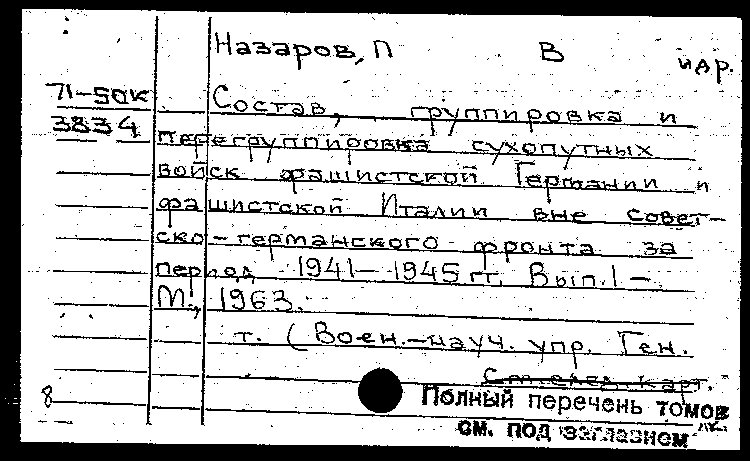 Назаров, П В и др.
71-50К Состав, группировка и
3834 перегруппировка сухопутных
войск фашистской Германии и
фашистской Италии вне совет-
ско-германского фронта за
период 1941-1945 гг. Вып. 1 -
М., 1963.
т. (Воен.-науч. упр. Ген.
См. след. карт.
8 Полный перечень томов
см. под заглавием